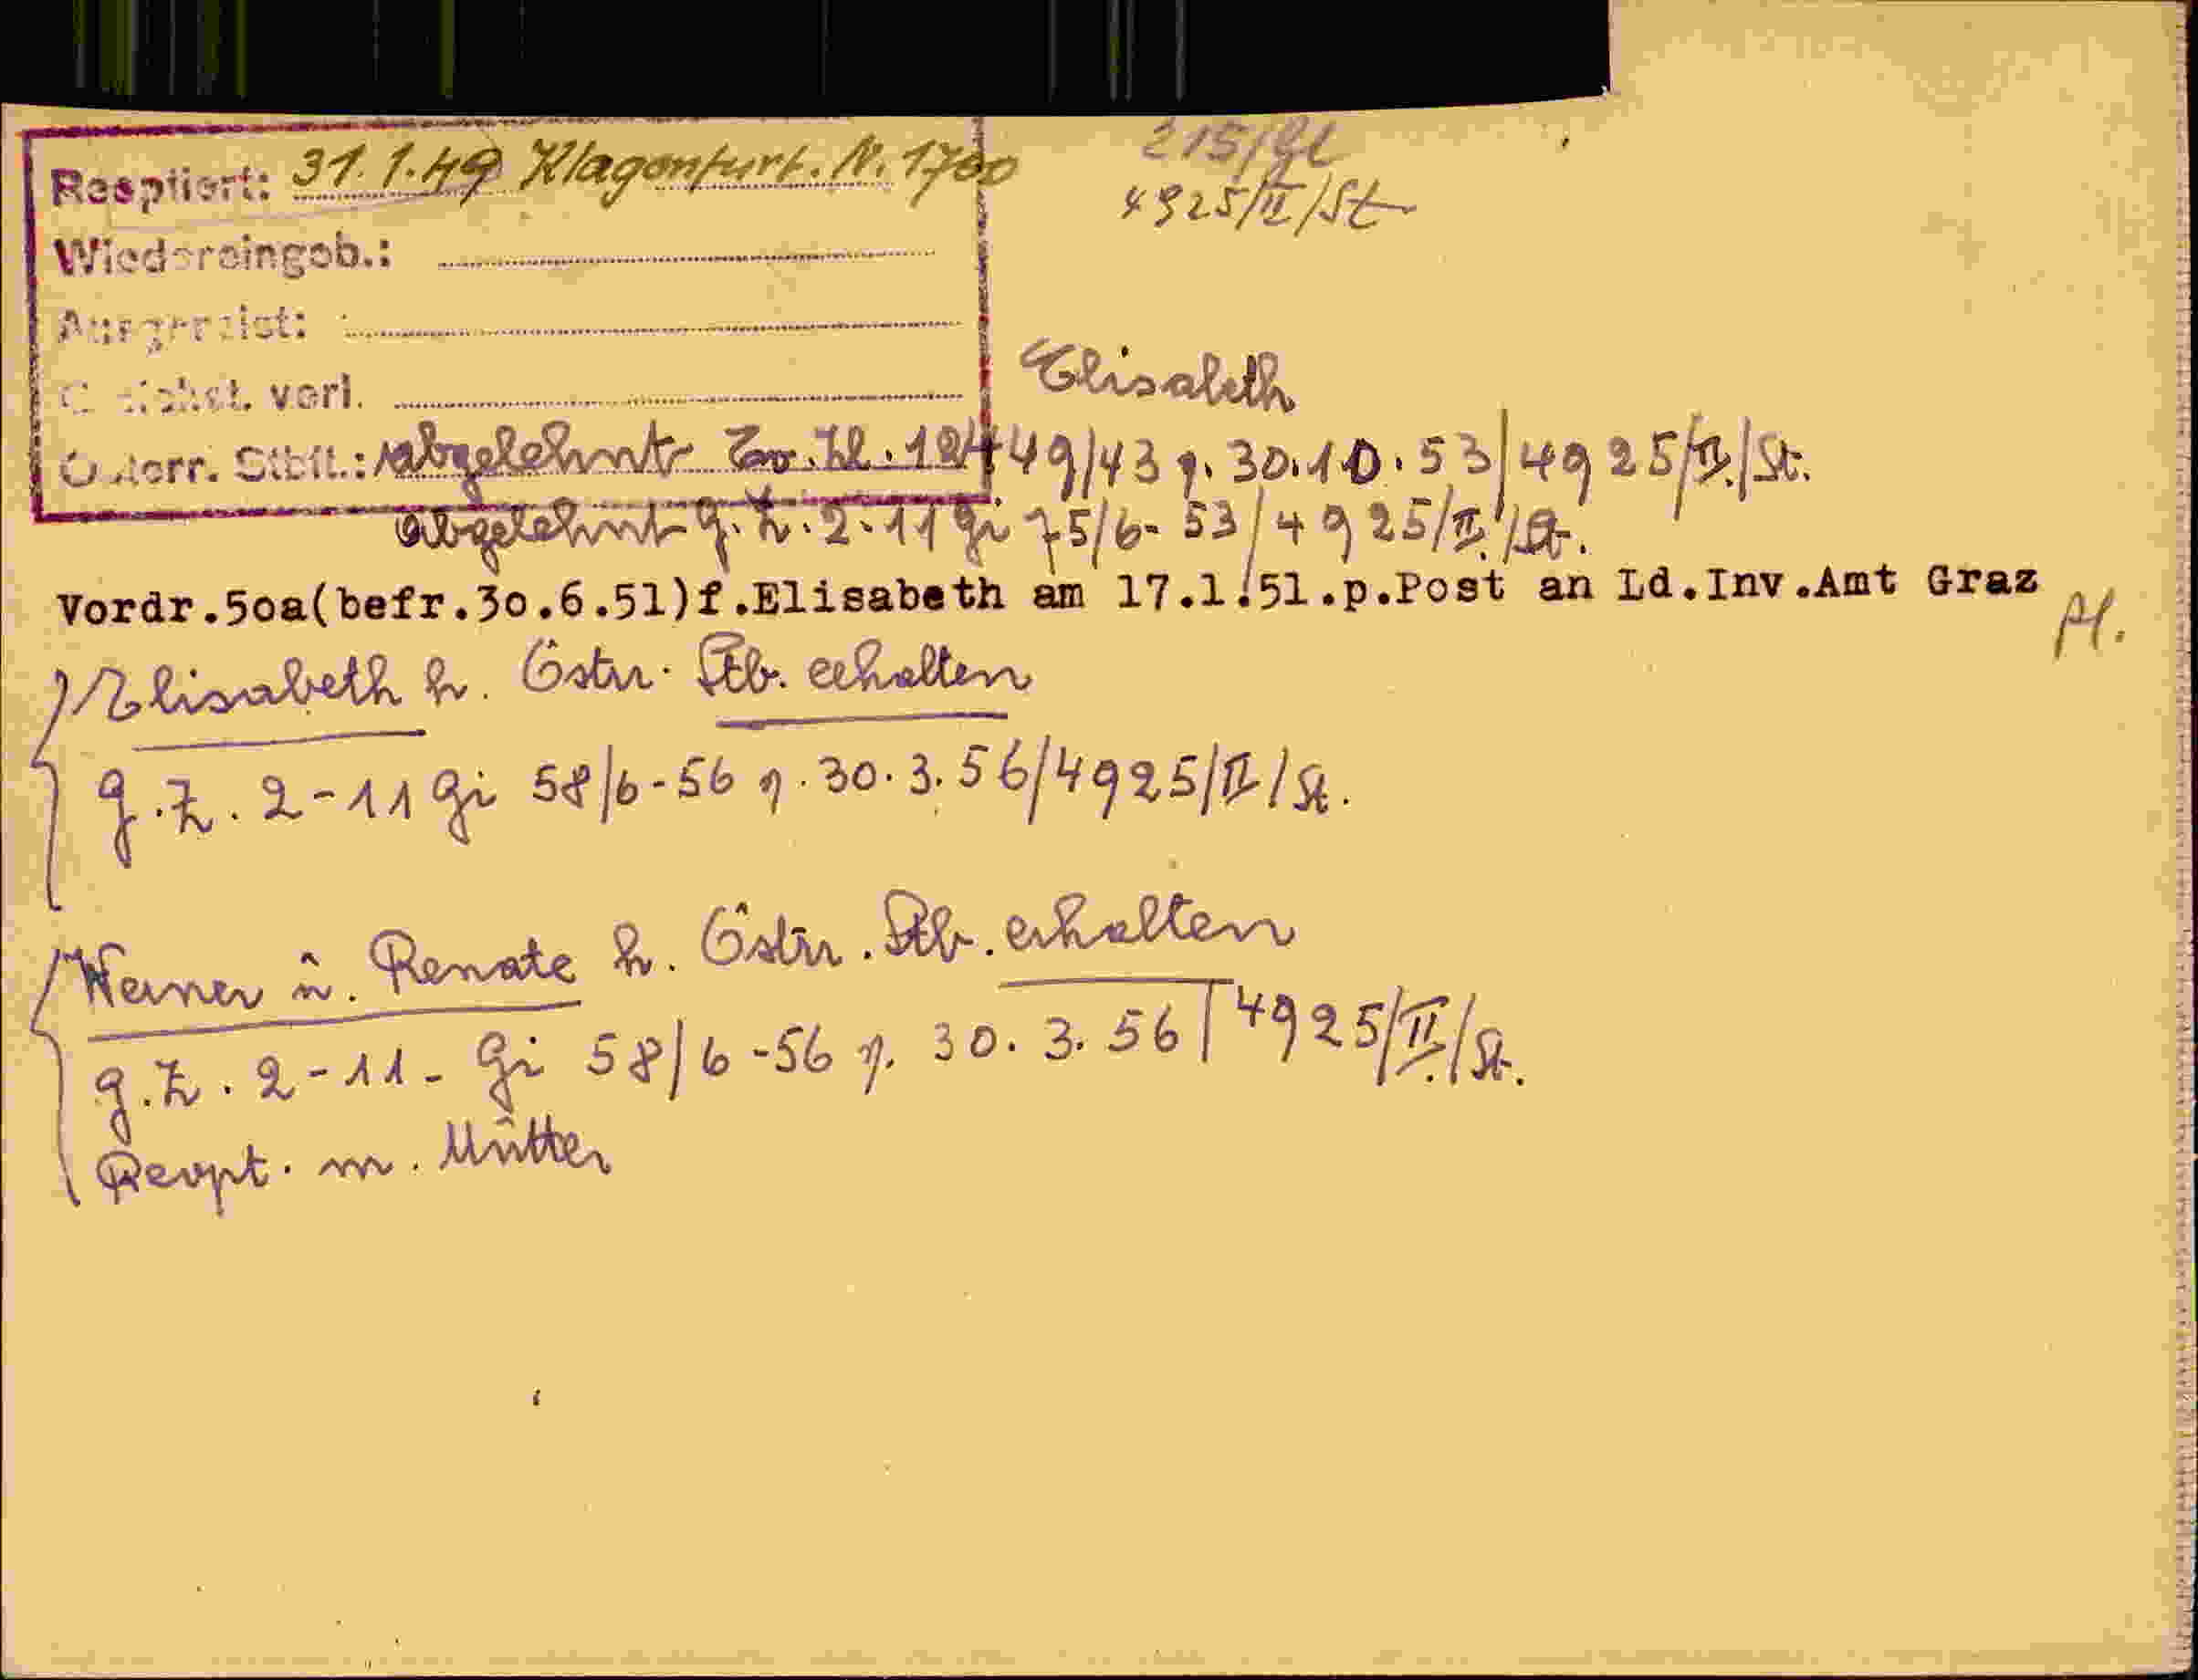 Reoptiert: 31.1.49 Klagenfurt. N. 1700
215/Gl
4925/II/St
Wiedereingeb.:
Ausgereist:
verl.
Elisabeth
Österr. Stbft.: abgelehnt Zl. 124449/43 v. 30.10.53/4925/II./St.
abgelehnt g.Z. 2-11 Gi 75/6-53/4925/II./St.
Vordr.50a(befr.30.6.51)f.Elisabeth am 17.1.51.p.Post an Ld.Inv.Amt Graz
Elisabeth h. Östr. Stb. erhalten
g.Z. 2-11 Gi 58/6-56 v. 30.3.56/4925/II/St.
Werner u. Renate h. Östr. Stb. erhalten
g.Z. 2-11- Gi 58/6-56 v. 30.3.56/4925/II./St.
Reopt. m. Mutter